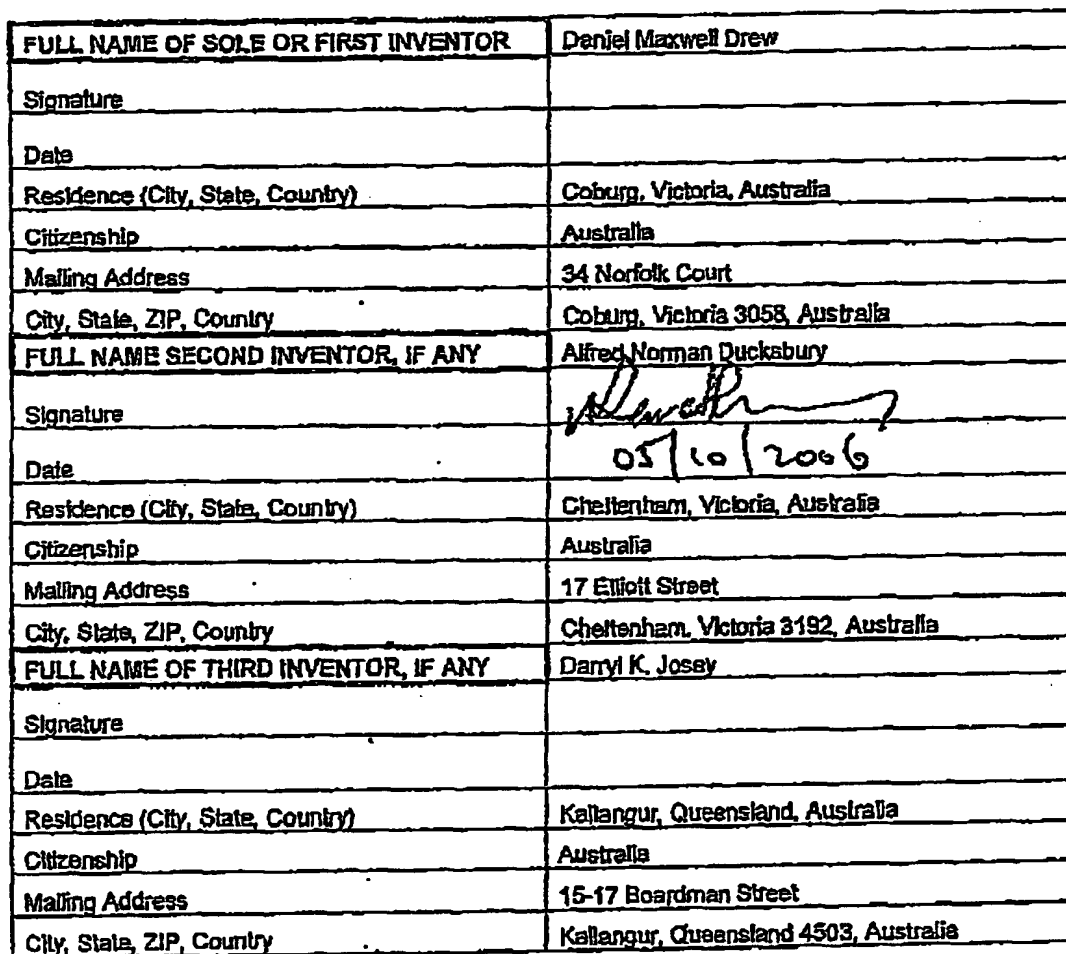 FULL NAME OF SOLE OR FIRST INVENTOR Daniel Maxwell Drew
Signature
Date
Residence (City, State, Country) Coburg, Victoria, Australia
Citizenship Australia
Mailing Address 34 Norfolk Court
City, State, ZIP, Country Coburg, Victoria 3058, Australia
FULL NAME SECOND INVENTOR, IF ANY Alfred Norman Ducksbury
Signature
Date 05/10/2006
Residence (City, State, Country) Cheltenham, Victoria, Australia
Citizenship Australia
Mailing Address 17 Elliott Street
City, State, ZIP, Country Cheltenham, Victoria 3192, Australia
FULL NAME OF THIRD INVENTOR, IF ANY Darryl K. Josey
Signature
Date
Residence (City, State, Country) Kallangur, Queensland, Australia
Citizenship Australia
Mailing Address 15-17 Boardman Street
City, State, ZIP, Country Kallangur, Queensland 4503, Australia